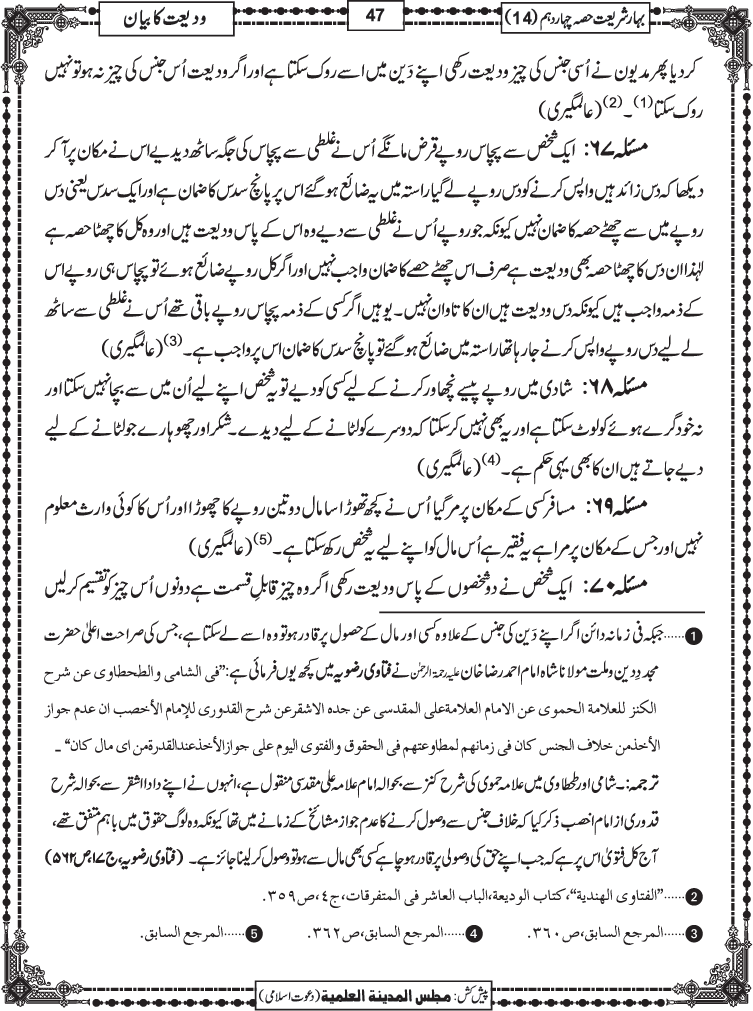 بہار شریعت حصہ چہار دہم (14)
47
ودیعت کا بیان
کردیا پھر مدیون نے اُسی جنس کی چیز ودیعت رکھی اپنے دَین میں اسے روک سکتا ہے اور اگر ودیعت اُس جنس کی چیز نہ ہو تو نہیں
روک سکتا(1)۔(2)(عالمگیری)
مسئلہ ۶۷: ایک شخص سے پچاس روپے قرض مانگے اُس نے غلطی سے پچاس کی جگہ ساٹھ دیدیے اس نے مکان پر آ کر
دیکھا کہ دس زائد ہیں واپس کرنے کو دس روپے لے گیا راستہ میں یہ ضائع ہو گئے اس پر پانچ سدس کا ضمان ہے اور ایک سدس یعنی دس
روپے میں سے چھٹے حصہ کا ضمان نہیں کیونکہ جو روپے اُس نے غلطی سے دیے وہ اس کے پاس ودیعت ہیں اور وہ کل کا چھٹا حصہ ہے
لہٰذا ان دس کا چھٹا حصہ بھی ودیعت ہے صرف اس چھٹے حصے کا ضمان واجب نہیں اور اگر کل روپے ضائع ہوئے تو پچاس ہی روپے اس
کے ذمہ واجب ہیں کیونکہ دس ودیعت ہیں ان کا تاوان نہیں۔ یوہیں اگر کسی کے ذمہ پچاس روپے باقی تھے اُس نے غلطی سے ساٹھ
لے لیے دس روپے واپس کرنے جا رہا تھا راستہ میں ضائع ہو گئے تو پانچ سدس کا ضمان اس پر واجب ہے۔(3)(عالمگیری)
مسئلہ ۶۸: شادی میں روپے پیسے نچھاور کرنے کے لیے کسی کو دیے تو یہ شخص اپنے لیے اُن میں سے بچا نہیں سکتا اور
نہ خود گرے ہوئے کو لوٹ سکتا ہے اور یہ بھی نہیں کر سکتا کہ دوسرے کو لٹانے کے لیے دیدے۔ شکر اور چھوہارے جو لٹانے کے لیے
دیے جاتے ہیں ان کا بھی یہی حکم ہے۔(4)(عالمگیری)
مسئلہ ۶۹: مسافر کسی کے مکان پر مر گیا اُس نے کچھ تھوڑا سا مال دو تین روپے کا چھوڑا اور اُس کا کوئی وارث معلوم
نہیں اور جس کے مکان پر مرا ہے یہ فقیر ہے اُس مال کو اپنے لیے یہ شخص رکھ سکتا ہے۔(5)(عالمگیری)
مسئلہ ۷۰: ایک شخص نے دو شخصوں کے پاس ودیعت رکھی اگر وہ چیز قابلِ قسمت ہے دونوں اُس چیز کو تقسیم کرلیں
1......جبکہ فی زمانہ دائن اگر اپنے دَین کی جنس کے علاوہ کسی اور مال کے حصول پر قادر ہو تو وہ اسے لے سکتا ہے، جس کی صراحت اعلیٰ حضرت
مجدد دین وملت مولانا شاہ امام احمد رضا خان علیہ رحمۃ الرحمٰن نے فتاوی رضویہ میں کچھ یوں فرمائی ہے:"فی الشامی و الطحطاوی عن شرح
الکنز للعلامة الحموی عن الامام العلامةعلی المقدسی عن جدہ الاشقرعن شرح القدوری للإمام الأخصب ان عدم جواز
الأخذمن خلاف الجنس کان فی زمانھم لمطاوعتھم فی الحقوق والفتوی الیوم علی جوازالأخذعندالقدرةمن ای مال کان" ۔
ترجمہ:۔شامی اور طحطاوی میں علامہ حموی کی شرح کنز سے بحوالہ امام علامہ علی مقدسی منقول ہے، انہوں نے اپنے دادا اشقر سے بحوالہ شرح
قدوری از امام اخصب ذکر کیا کہ خلاف جنس سے وصول کرنے کا عدم جواز مشائخ کے زمانے میں تھا کیونکہ وہ لوگ حقوق میں باہم متفق تھے،
آج کل فتویٰ اس پر ہے کہ جب اپنے حق کی وصولی پر قادر ہو چاہے کسی بھی مال سے ہو تو وصول کر لینا جائز ہے۔ (فتاوی رضویہ، ج۱۷، ص۵۶۲)
2......"الفتاوی الھندیة"، کتاب الودیعة،الباب العاشر فی المتفرقات، ج٤،ص۳۵۹.
3......المرجع السابق،ص۳۶۰.
4......المرجع السابق،ص۳۶۲.
5......المرجع السابق.
پیش کش: مجلس المدینة العلمیة (دعوت اسلامی)